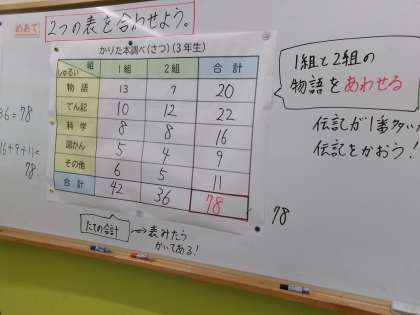 めあて
2つの表を合わせよう。
かりた本調べ(さつ)(3年生)
組 しゅるい 1組 2組 合計
物語 13 7 20
でん記 10 12 22
科学 8 8 16
図かん 5 4 9
その他 6 5 11
合計 42 36 78
36=78
16+9+11=
78
1組と2組の
物語をあわせる
伝記が1番多い
伝記をかおう!
78
たての合計
表みたら
かいてある!